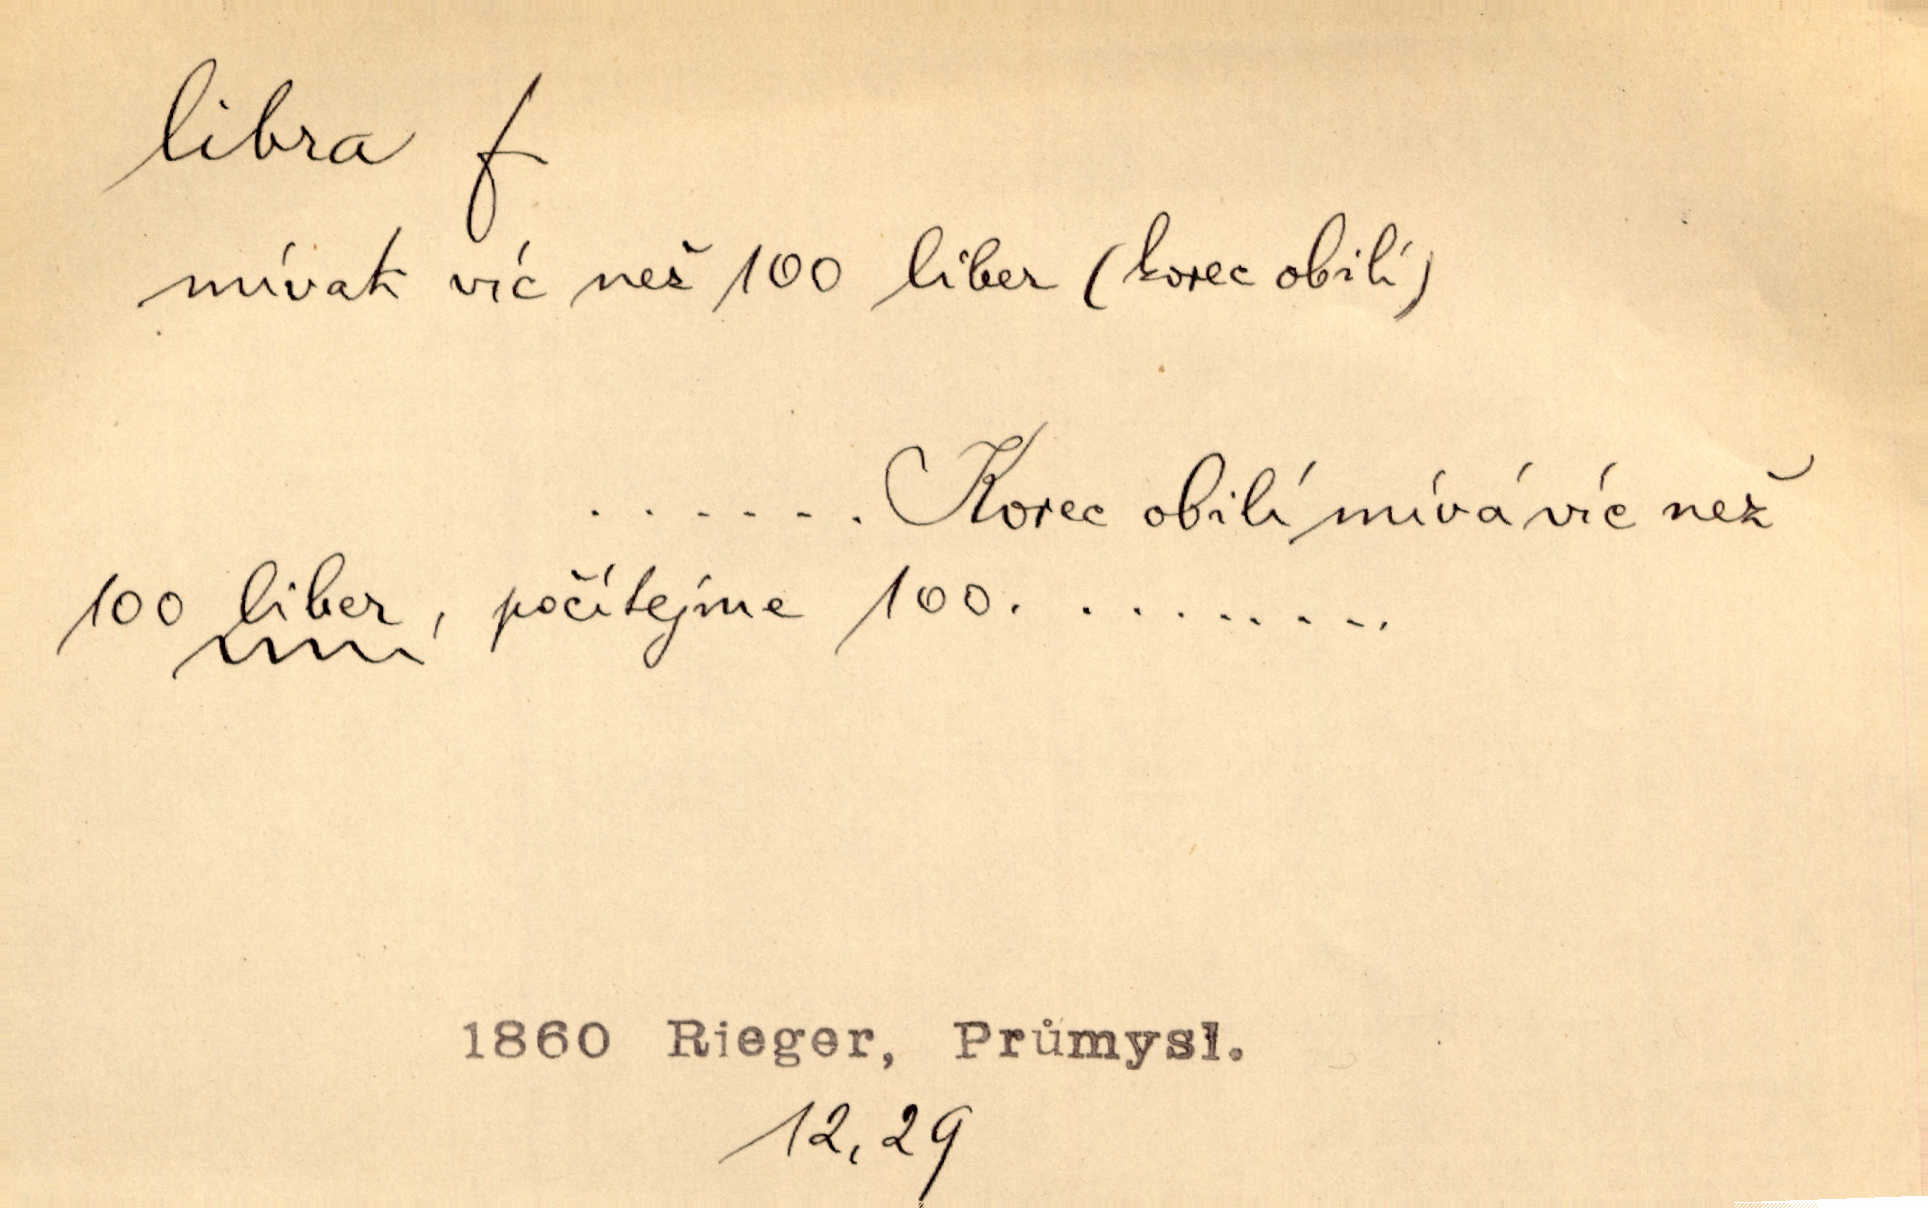 libra f
mívati víc než 100 liber (korec obilí)
. . . . . . . Korec obilí mívá víc než
100 liber, počítejme 100. . . . . . . . .
1860 Rieger, Průmysl.
12, 29